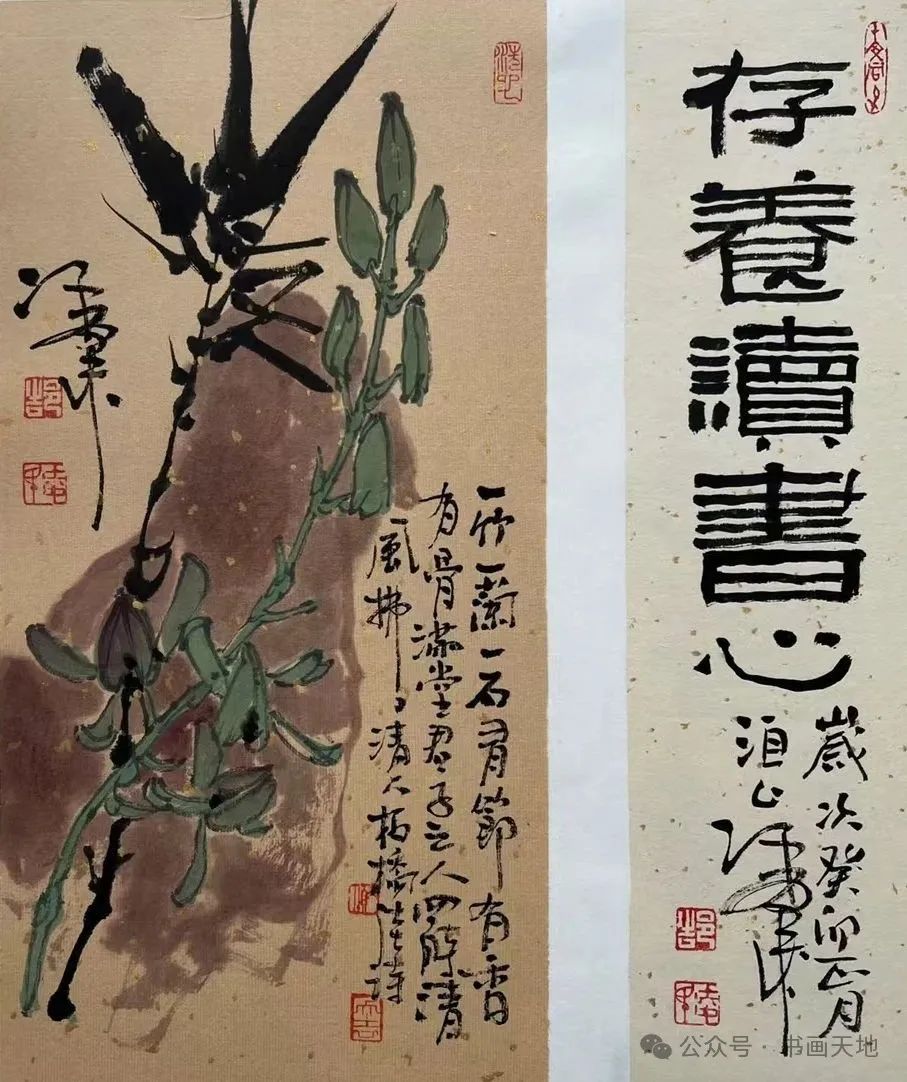 存養讀書心
歲次癸卯
洹上
一竹一蘭一石有節有香
有骨滿堂君子之人四時清
風拂々清人板橋先生詩
公众号 · 书画天地